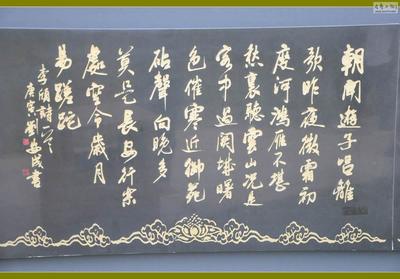 朝聞遊子唱離
歌昨夜微霜初
度河鴻雁不堪
愁裏聽雲山況是
客中過關城曙
色催寒近御苑
砧聲向晚多
莫是長安行樂
處空令歲月
易蹉跎
李頎詩一首
庚寅劉書